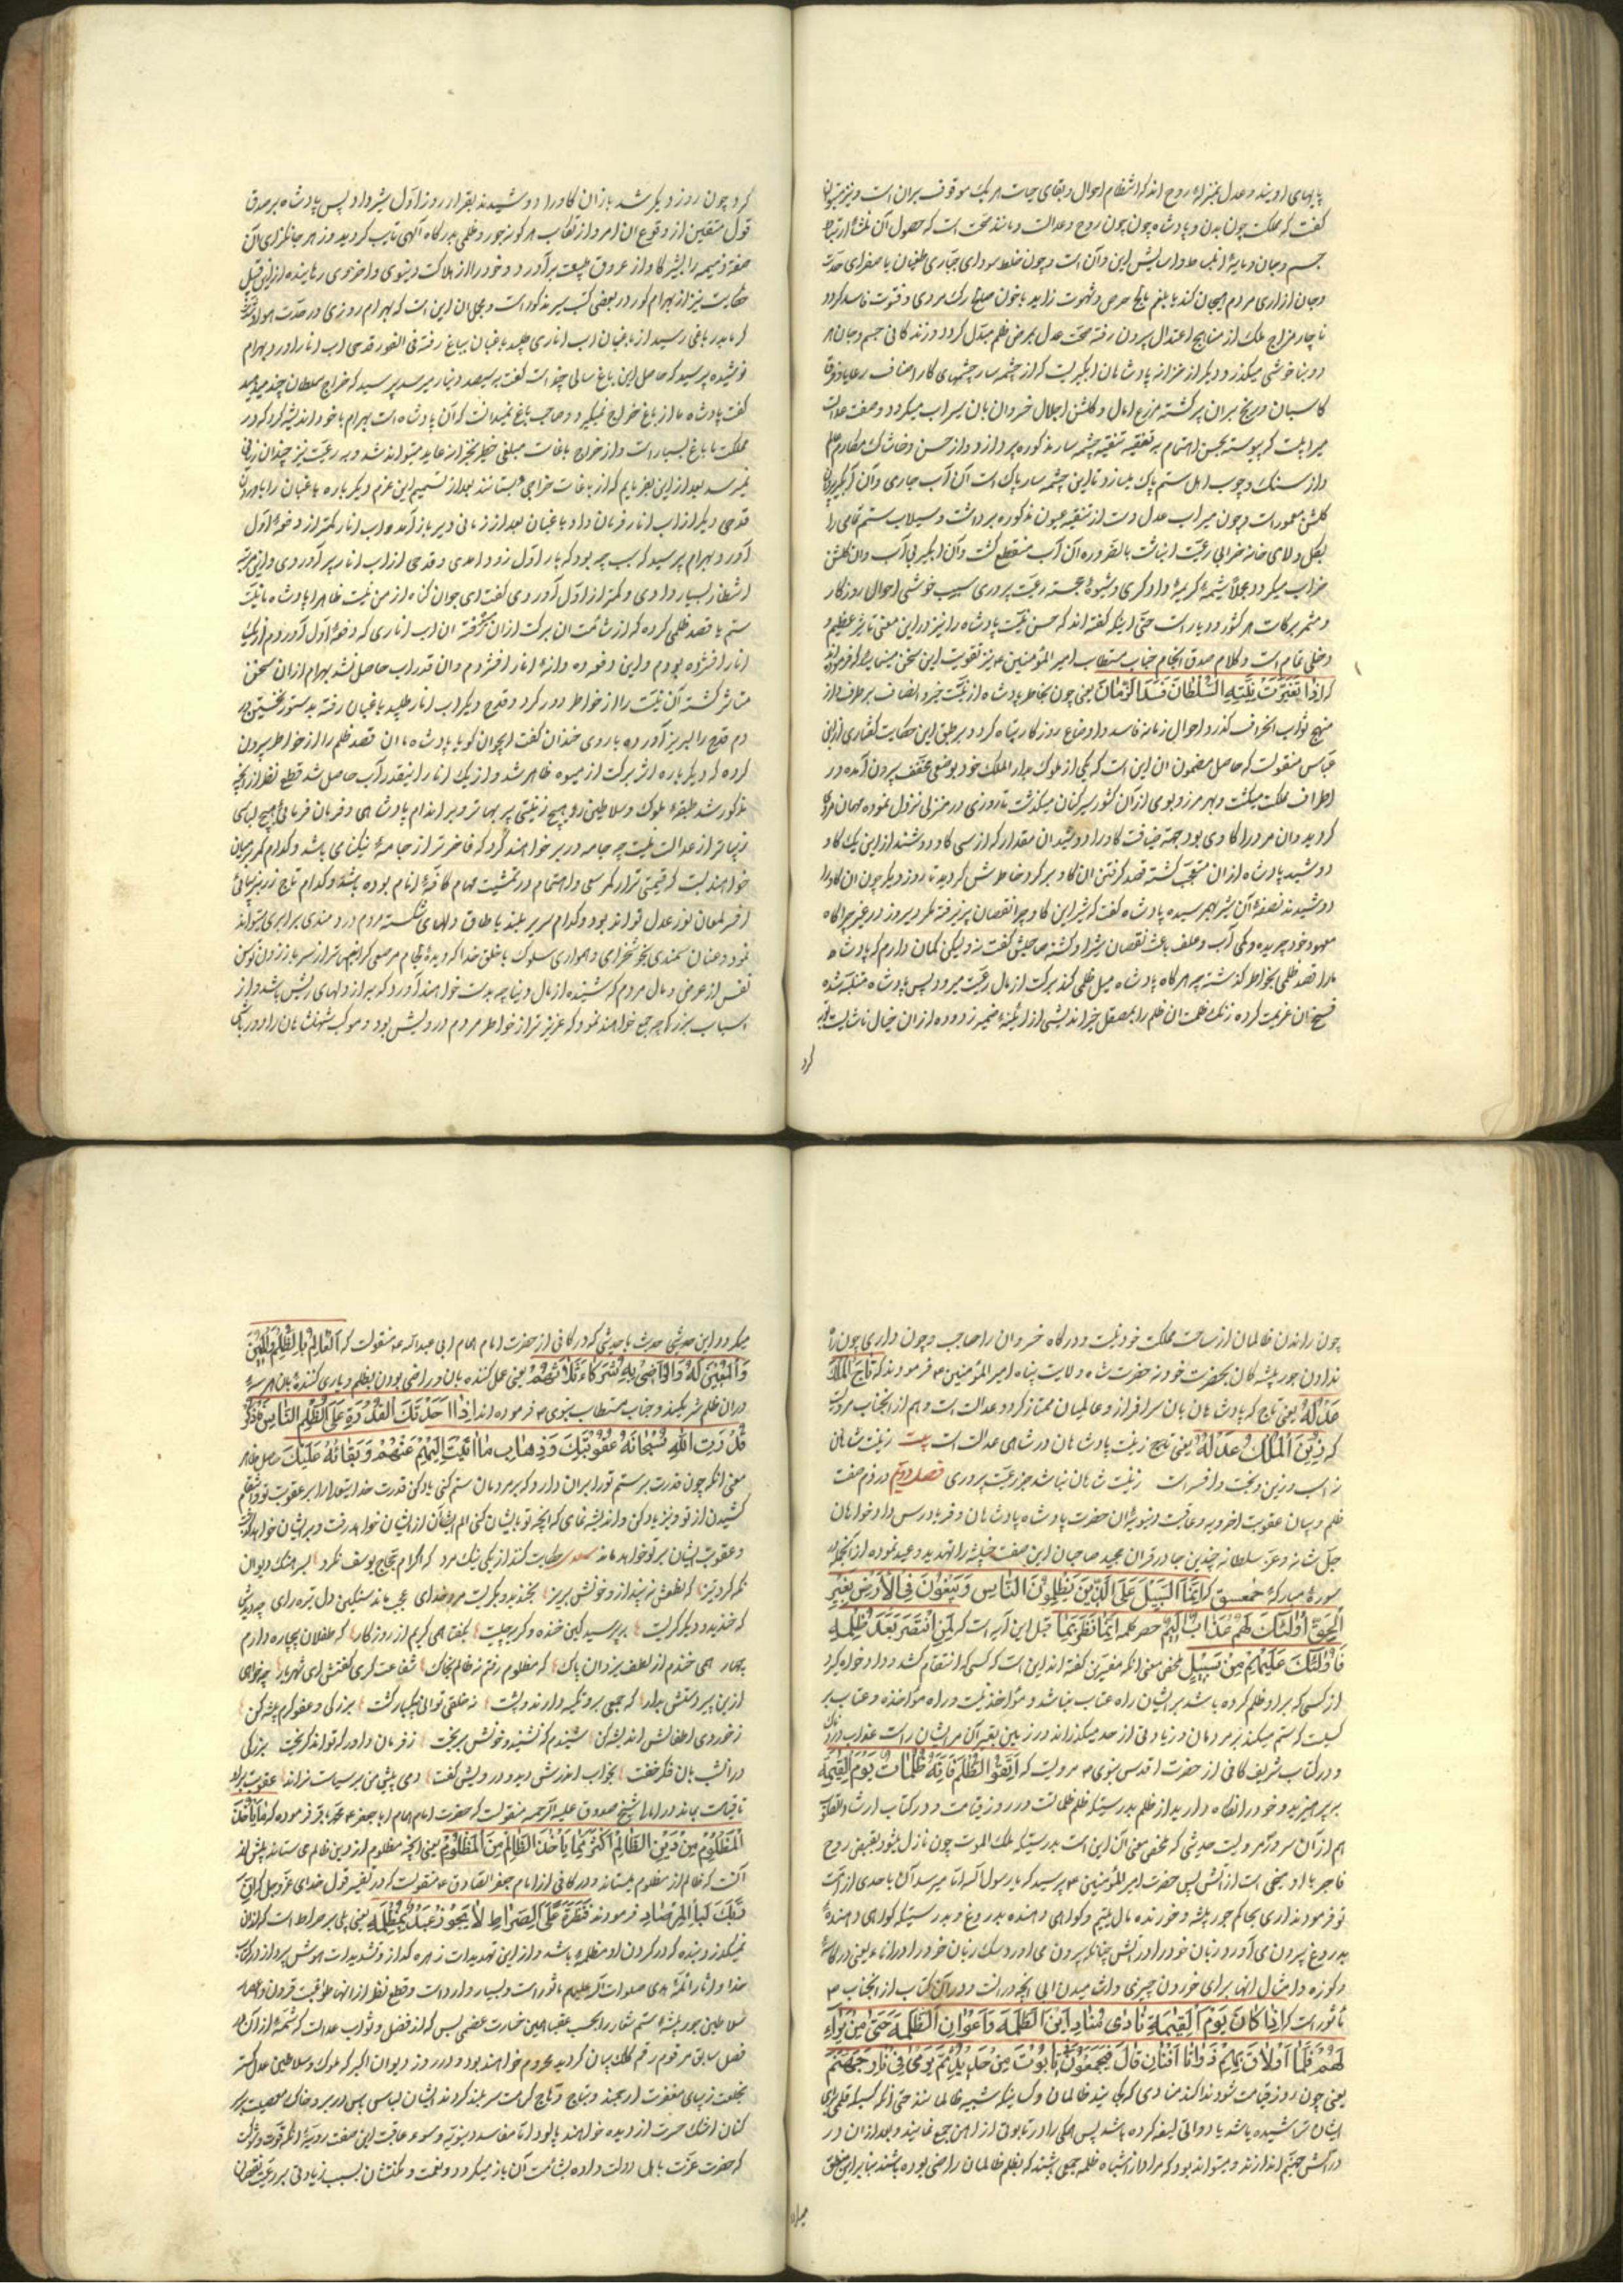 پایهای اویند و عدل بمنزلهٔ روح اند که انتظام احوال و بقای حیات هر یک موقوف بران است و نیز میتوان
گفت که مملکت چون بدن و پادشاه چون روح و عدالت مانند صحّت است که حصول آن
جسم و جان
و جان ازاری مردم هیجان کند یا بلغم حرص و شهوت زاید یا خون صلح رک مردی و فتوت فاسد کردد
ناچار مزاج ملک از منهاج اعتدال بیرون رفته صحّت عدل بمرض ظلم مبدّل کردد و زندکانی جسم و جان
و بناخوشی میکذرد و دیکر از خزانه پادشاهان
کاسبان و برزیکران برکشته مزرع امال و کلشن اجلال خسروان بان سیراب میکردد و صفت عدالت
میرابیست که پیوسته بحسن اهتمام به تنقیه چشمه سار مذکوره پردازد و از خس و خاشاک مکارم
و از سنک و چوب اهل ستم پاک سازد تا این چشمه سار پاک است آن آب جاری و آن
کلشن معمور است و چون میراب عدل دست از تنقیه عیون مذکوره برداشت و سیلاب ستم
بکل و لای خانه خرابی رعیّت انباشت بالضروره آن آب منقطع کشت و آن ابکیر بی آب و آن کلشن
خراب میکردد مجملاً شیمهٔ کریمهٔ دادکری و شیوهٔ خجسته رعیّت پروری سبب خوشی احوال روزکار
و مثمر برکات هر کشور و دیار است حتّی اینکه کفته اند که حسن نیّت پادشاه را نیز در این معنی تاثیر عظیم و
دخلی تمام است و کلام صدق انجام جناب مستطاب امیر المؤمنین ع نیز تقویت این سخن مینماید که فرموده اند
که اِذا تَغَیَّرَتْ نِیَّتِهِ السُّلْطانَ فَسَدَ الزَّمانَ یعنی چون بخاطر پادشاه از نیّت خیر و انصاف بر طرف و از
منهج ثواب انحراف کند احوال زمانه فاسد و اوضاع روزکار تباه کردد و بر طبق این حکایت کفتاری از ابن
عبّاس منقولست که حاصل مضمون ان این است که یکی از ملوک بدار الملک خود بوضعی مخفّف بیرون آمده در
اطراف مملکت میکشت و بهر مرز و بومی از آن کشور سیرکنان میکذشت تا روزی در منزلی نزول نموده مهمان مردی
کردید و ان مرد را کاوی بود جهة ضیافت کاو را دوشید ان مقدار که از سی کاو دوشند از این یک کاو
دوشید پادشاه از ان متعجّب کشته قصد کرفتن ان کاو بر کرد خاطرش کردید تا روز دیکر چون ان کاو را
دوشیدند نصفهٔ آن شیر بهم رسید پادشاه کفت که شیر این کاو چرا نقصان پذیرفته مکر دیروز در غیر چراکاه
معهود خود چریده و کمی آب و علف باعث نقصان شیر او کشته صاحبش کفت نه و لیکن کمان دارم که پادشاه
ما را قصد ظلمی بخاطر کذشته چه هرکاه پادشاه میل ظلمی کند برکت از مال رعیّت میرود پس پادشاه متنبّه شده
فسخ ان عزیمت کرده زنک ظلمت ان ظلم را بمصقل خیراندیشی از ایینهٔ ضمیر زدوده از ان خیال ناشایست
کرد
کرد چون روز دیکر شد باز ان کاو را دوشیدند بقرار روز اول شیر داد پس پادشاه بر صدق
قول متیقین از وقوع ان امر و از ارتکاب هر کونه جور و ظلمی بدرکاه آلهی تایب کردید و زهر جانکزای آن
صفة ذمیمه را
حکایت نیز از بهرام کور در بعضی کتب سیر مذکور است و مجمل ان این است که بهرام روزی در حدّت هوا و شدّت
کرما بدر باغی رسید از باغبان اب اناری طلبید باغبان بباغ رفته فی الفور قدحی اب انار اورد بهرام
نوشیده پرسید که حاصل این باغ سالی چند است کفت بسیصد دینار میرسد پرسید که خراج سلطان چند میدهید
کفت پادشاه ما از باغ خراج نمیکیرد و صاحب باغ نمیدانست که آن پادشاه است بهرام با خود اندیشه کرد که در
مملکت ما باغ بسیار است و از خراج باغات مبلغی خطیر بخزانه عاید میتواند شد و به رعیّت نیز چندان زیانی
نمیرسد بعد از این بفرمایم که از باغات خراجی بستانند بعد از تصمیم این عزم دیکر باره باغبان را باوردن
قدحی دیکر از اب انار فرمان داد باغبان بعد از زمانی دیر باز آمد و اب انار کمتر از دفعهٔ اوّل
آورد بهرام پرسید که سبب چه بود که بار اوّل زود امدی و قدحی از اب انار پر آوردی و این مرتبه
انتظار بسیار دادی و کمتر از اوّل آوردی کفت ای جوان کناه از من نیست ظاهرا پادشاه ما نیّت
ستم یا قصد ظلمی کرده که از شئامت ان برکت از ان کرفته ان اب اناری که دفعهٔ اوّل آوردم از یک
انار افشرده بودم و این دفعه ده دانهٔ انار افشردم و ان قدر اب حاصل نشد بهرام از ان سخن
متاثر کشته آن نیّت را از خواطر دور کرد و قدح دیکر اب انار طلبید باغبان رفته بدستور نخستین در
دم قدح را لبریز آورده با روی خندان کفت ایجوان کویا پادشاه ما ان قصد ظلم را از خواطر بیرون
کرده که دیکر باره اثر برکت از میوه ظاهر شد و از یک انار اینقدر آب حاصل شد قطع نظر از انچه
مذکور شد طبقهٔ ملوک و سلاطین را هیچ زینتی پر بهاتر و بر اندام پادشاهی و فرمان فرمائی هیچ لباسی
زیباتر از عدالت نیست چه جامه در بر خواهند کرد که فاخرتر از جامهٔ نیکنامی باشد و کدام کمر بر میان
خواهند بست که قیمتی تر از کمر سعی و اهتمام در تمشیت مهام کافّهٔ انام بوده باشد و کدام تاج زر بزیبائی
افسر لمعان نور عدل تواند بود و کدام سریر بلند با طاق دلهای شکسته مردم دردمندی برابری تواند
نمود و عنان سمندی بخوشخرامی و همواری سلوک با خلق خدا کرو بدهٔ لجام مرصعی
نفس از عرض و مال مردم که شنیده از مال دنیا چه بدست خواهند آورد که به از دلهای ریش باشد و از
اسباب بزرکی چه جمع خواهند نمود که عزیزتر از خواطر مردم درویش بود و موکب شهنشاهان را دور باشی
چون راندن ظالمان از ساحت مملکت خود نیست و درکاه خسروان را صاحب و چون
ندادن جورپیشه کان بحضرت خود نه حضرت شاه ولایت پناه امیر المؤمنین ع فرمودند که تاجُ المَلِکِ
عَدْلُهُ یعنی تاج که پادشاهان بان سرافراز و عالمیان ممتاز کردد عدالت است و هم از انجناب مرویست
که زَیْنُ المُلْکِ عَدْلُهُ یعنی زینت پادشاهان در شاهی عدالت است بیت زینت شاهان
نه اسب و زین و تخت و افسر است زینت شاهان نباشد جز رعیّت پروری فصل دویّم در ذم صفت
ظلم و بیان عقوبت اخرویه و عاقبت دنیویهٔ ان حضرت پادشاه پادشاهان و فریادرس دادخواهان
جلّ شانه و عزّ سلطانه چندین جا در قران مجید صاحبان این صفت خبیثه را تهدید و وعید نموده از انجمله در
سورهٔ مبارکهٔ حمعسق که اِنَّمَا السَّبیلُ عَلَی الَّذینَ یَظْلِمُونَ النّاسَ وَ یَبْغُونَ فِی الْأَرْضِ بِغَیْرِ
الْحَقِّ اُولئِکَ لَهُمْ عَذابٌ اَلیمٌ حصر کلمه اِنَّما نظر بما قبل این آیه است که لَمَنِ انْتَصَرَ بَعْدَ ظُلْمِهِ
فَاُولئِکَ عَلَیْهِمْ مِنْ سَبیلٍ ملخّص معنی انکه مفسّرین کفته اند این است که کسی که انتقام کشد و دادخواه کردد
از کسی که بر او ظلم کرده باشد بر ایشان راه عتاب نباشد و مؤاخذ نیست و راه مؤاخذه و عتاب بر
کسیست که ستم میکند بر مردمان و زیادتی از حد میکذراند در زمین بغیر آن مر ایشان راست عذاب دردناک
و در کتاب شریف کافی از حضرت اقدس نبوی ص مرویست که اِتَّقُوا الظُّلْمَ فَاِنَّهُ ظُلُماتُ یَوْمِ القِیمَةِ
بپرهیزید و خود را نکاه دارید از ظلم بدرستیکه ظلم ظلمانست در روز قیامت و در کتاب ارشاد القلوب
هم از آن سرور مرویست حدیثی که ملخّص معنی آن این است بدرستیکه ملک الموت چون نازل میشود بقبض روح
فاجر با او سیخی است از آتش پس حضرت امیر المؤمنین ع پرسید که یا رسول الله ایا میرسد آن باحدی از امّت
تو فرمودند اری بحاکم جورپیشه و خورنده مال یتیم و کواهی دهنده بدروغ و بدرستیکه کواهی دهندهٔ
بدروغ بیرون می آورد زبان خود را در آتش چنانکه بیرون می اورد سک زبان خود را در اناء یعنی در کاسهٔ
و کوزه و امثال انها برای خوردن چیزی و اشامیدن ابی انچه در انست و در آن کتاب از انجناب ص
مأثور است که اِذا کانَ یَوْمُ القِیمَةِ نادی مُنادٍ اَیْنَ الظَّلَمَة وَ اَعْوانُ الظَّلَمَة حَتّی مَنْ بَراءِ
لَهُمْ قَلَماً اَوْ لاقَ لَهُمْ دَواتاً قالَ فَیُجْمَعُونَ فی تابُوتٍ مِنْ حَدیدٍ ثُمَّ یُرْمی فی نارِ جَهَنَّمَ
یعنی چون روز قیامت شود ندا کند منادی که کجایند ظالمان و کسانیکه شبیه ظالمانند حتی انکه کسیکه قلمی برای
ایشان تراشیده باشد یا دواتی لیقه کرده باشد پس همکی را در تابوتی از اهن جمع نمایند و بعد از ان در
در اتش جهنّم اندازند و میتواند بود که مراد از اشباه ظلمه جمعی باشند که بظلم ظالمان راضی بوده باشند بنابراین مطلق
میکردد این حدیثی با حدیثی که در کافی از حضرت امام همام ابی عبدالله ع منقولست که اَلعامِلُ بِالظُّلْمِ وَ المُعینُ
وَ المُعینُ لَهُ وَ الرّاضی بِهِ شُرَکاءُ ثَلاثَتُهُمْ یعنی عمل کننده بان و راضی بودن بظلم و یاری کننده بان هر سه
در ان ظلم شریکند و جناب مستطاب نبوی ص فرموده اند اِذا حَدَتْکَ القُدْرَةُ عَلی الظُّلْمِ النّاسِ فَاذْکُرْ
قُدْرَتَ اللهِ سُبْحانَهُ عُقُوبَتِکَ وَ ذِهابِ ما اَتَیْتَ اِلَیْهِمْ عَنْهُمْ وَ بَقائُهُ عَلَیْکَ حاصل ظاهر
معنی انکه چون قدرت بر ستم تو را بران دارد که بر مردمان ستم کنی یاد کن قدرت خدایتعالی را بر عقوبت تو و انتقام
کشیدن از تو و نیز یاد کن و اندیشه نمای که انچه تو بایشان کنی الم ایشان از ایشان خواهد رفت و بر ایشان خواهد
و عقوبت ایشان بر تو خواهد ماند سعدی حکایت کند از یکی نیک مرد که اکرام حجّاج یوسف نکرد بسرهنک دیوان
نکه کرد تیز که نطعش بینداز و خونش بریز بخندید و بکریست مرد خدای عجب ماند سنکین دل تیره رای چو دیدش
که خندید و دیکر کریست بپرسید کاین خنده و کریه چیست بکفت همی کریم از روزکار که طفلان بیچاره دارم
چهار همی خندم از لطف یزدان پاک که مظلوم رفتم نه ظالم بخاک شفاعت کری کفتش ای شهریار چه خواهی
ازین پیر دستش بدار که جمعی برو تکیه دارند و پشت نه خلقی توانی بیکبار کشت بزرکی و عفو و کرم پیشه کن
ز خوردی اطفالش اندیشه کن شنیدم که نشنید و خونش بریخت ز فرمان داور که تواند کریخت بزرکی
در انشب بان فکر خفت بخواب اندرش دید و درویش کفت دمی بیش بر من سیاست نراند عقوبت برو
تا قیامت بماند در امالی شیخ صدوق علیه الرّحمه منقولست که حضرت امام همام اباجعفر ع محمّد باقر فرموده که ما یَأخُذُ
المَظْلُومُ مِنْ دینِ الظّالِمِ اَکْثَرُ مِمّا یَأخُذُ الظّالِمُ مِنَ المَظْلُومِ یعنی انچه مظلوم از دین ظالم می ستاند بیش از
آنست که ظالم از مظلوم میستاند و در کافی از امام جعفر الصّادق ع منقولست که در تفسیر قول خدای عزّوجل که اِنَّ
رَبَّکَ لَبِالْمِرْصادِ فرمودند قَنْطَرَةٌ عَلَی الصِّراطِ لا یَجُوزُ عَبْدٌ بِمَظْلِمَةٍ یعنی پلی بر صراط است که از ان
نمیکذرد بنده که در کردن او مظلمهٔ باشد و از این تهدیدات زهره کداز و تشدیدات هوش پرداز در کتاب
خدا و اثار ائمّهٔ هدی صلوات الله علیهم ماثور است و بسیار وارد است و قطع نظر از انها عواقب قرون
سلاطین جورپیشهٔ ستم شعار را بحسب عقبا همین خسارت عظمی بس که از فضل و ثواب عدالت که شمّهٔ از آن در
فصل سابق مرقوم رقم کلک بیان کردید محروم خواهند بود و در روز دیوان اکبر که ملوک و سلاطین عدل کستر
بخلعت زیبای مغفرت ارجمند و بتاج و تاج کرامت سربلند کردند ایشان لباس یاس در بر و خاک مصیبت بر سر
کنان اشک حسرت از دیده خواهند پالود امّا مفاسد دنیویّه و سوء عاقبت این صفت ردیّهٔ انکه قوّت و شوکت
که حضرت عزّت باهل دولت داده بشئامت آن باز میکردد و نعمت و مکنتشان بسبب زیادتی بر رعیّت نقصان